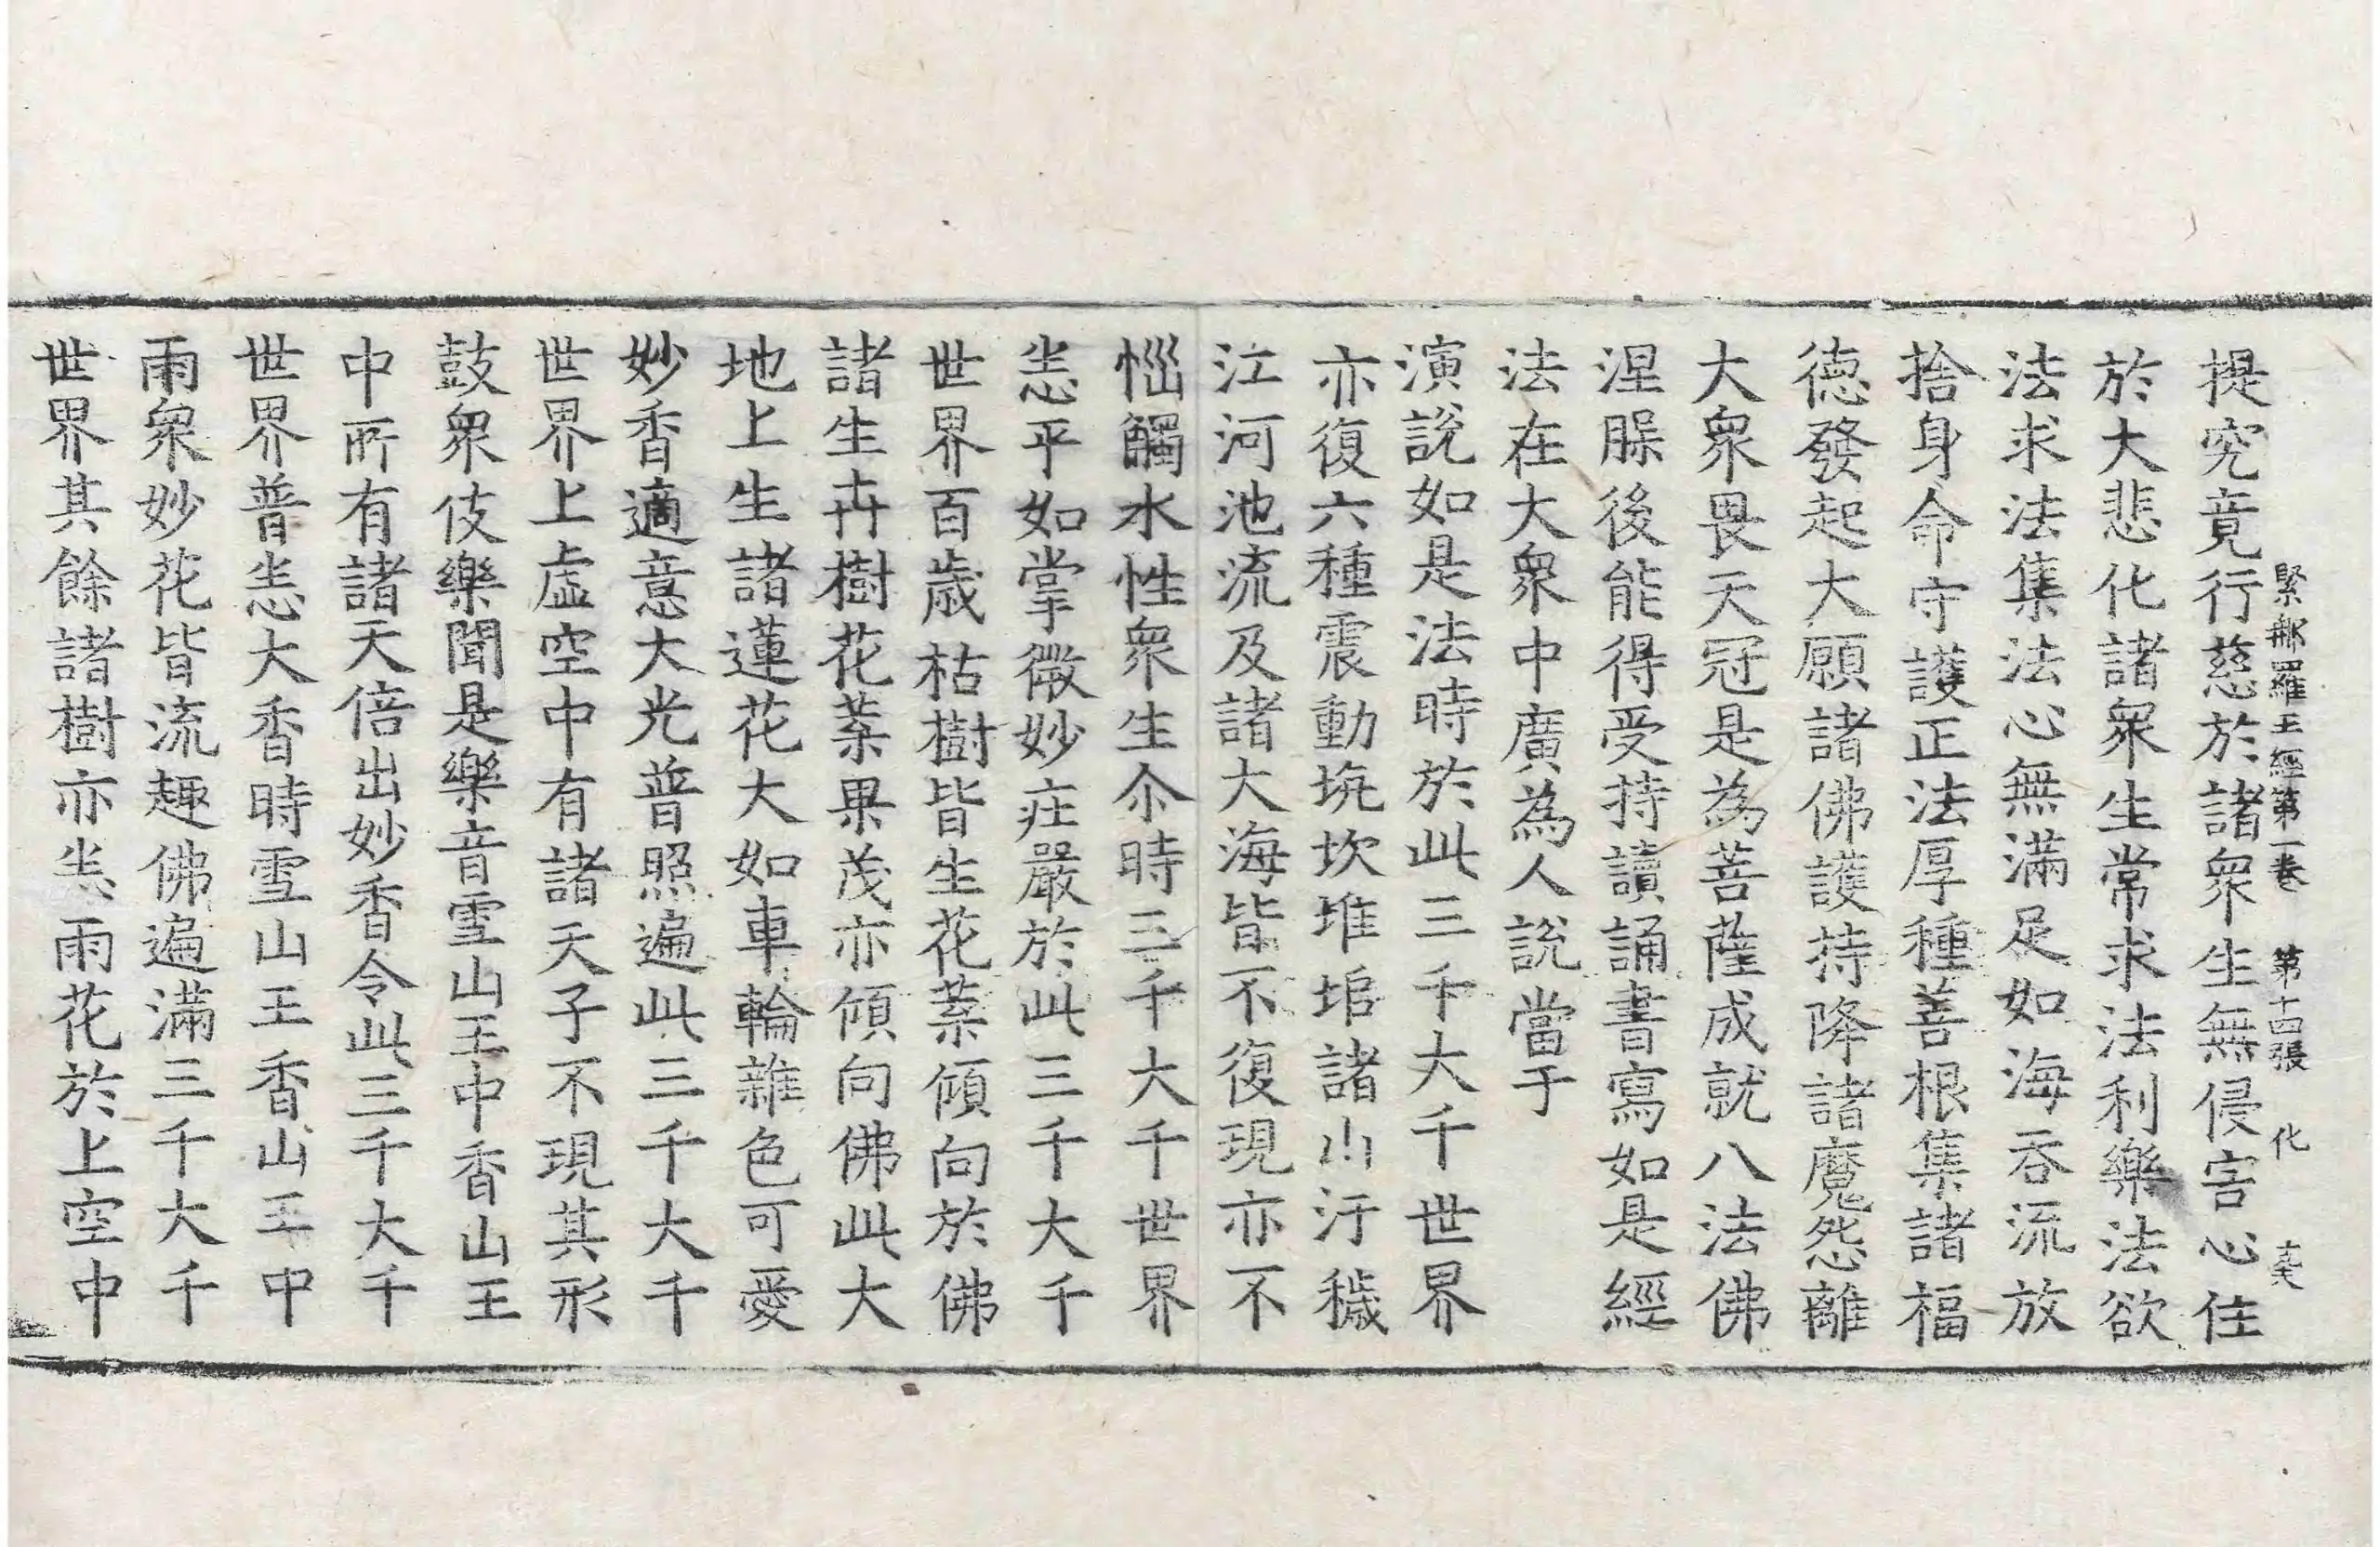 緊那羅王經第一卷　第十四張　化
提究竟行慈於諸衆生無侵害心住
於大悲化諸衆生常求法利樂法欲
法求法集法心無滿足如海吞流放
捨身命守護正法厚種善根集諸福
德發起大願諸佛護持降諸魔怨離
大衆畏天冠是為菩薩成就八法佛
涅槃後能得受持讀誦書寫如是經
法在大衆中廣為人說當于
演說如是法時於此三千大千世界
亦復六種震動坑坎堆埠諸山汙穢
江河池流及諸大海皆不復現亦不
惱觸水性衆生尒時三千大千世界
悉平如掌微妙莊嚴於此三千大千
世界百歲枯樹皆生花葉傾向於佛
諸生卉樹花葉果茂亦傾向佛此大
地上生諸蓮花大如車輪雜色可愛
妙香適意大光普照遍此三千大千
世界上虛空中有諸天子不現其形
鼓衆伎樂聞是樂音雪山王中香山王
中所有諸天倍出妙香令此三千大千
世界普悉大香時雪山王香山王中
雨衆妙花皆流趣佛遍滿三千大千
世界其餘諸樹亦悉雨花於上空中